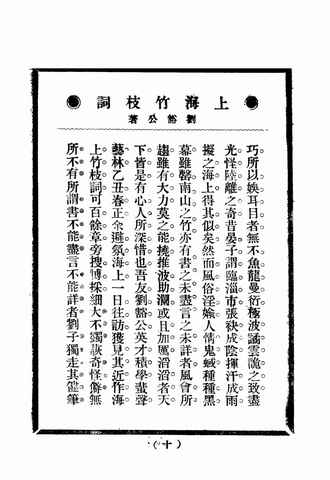 上海竹枝詞
劉豁公著
巧所以娛耳目者無不魚龍曼衍極波譎雲詭之致盡
光怪陸離之奇昔晏子謂臨淄市張袂成陰揮汗成雨
擬之海上得其似矣然而風俗淫媮人情鬼蜮種種黑
幕雖罄南山之竹亦有書之未盡言之未詳者風會所
趨雖有大力莫之能挽推波助瀾或且加厲滔滔者天
下皆是有心人所深惜也吾友劉豁公英才積學蜚聲
藝林乙丑春正余避氛海上一日往訪獲見其近作海
上竹枝詞可百餘章旁搜博採細大不奇怪鮮無
所不有所謂書不能盡言不能詳者劉子獨走其筆
(十)